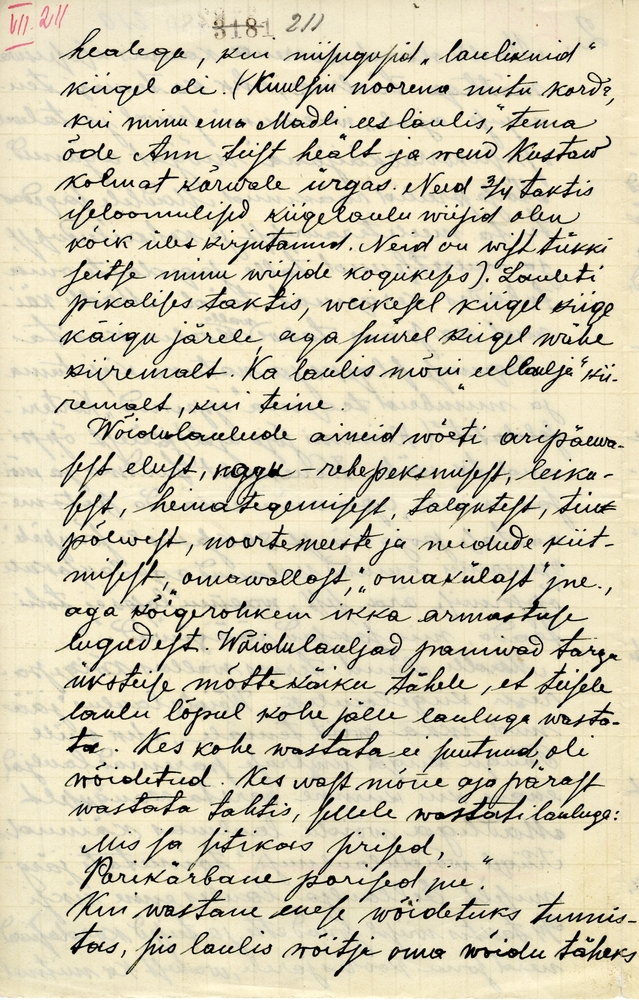 VII. 211
3181 211
healega, kui niisugusid „laulikuid“
kiigel oli. (Kuulsin noorena mitu korda,
kui minu ema Madli ees laulis, tema
õde Ann teist healt ja wend Kustaw
kolmat kõrwale ürgas. Need 3/4 taktis
iseloomulised kiigelaulu wiisid olen
kõik üles kirjutanud. Neid on wist tükki
seitse minu wiiside kogukeses). Lauleti
pikalises taktis, weikesel kiigel kiige
käigu järele, aga suurel kiigel wähe
kiiremalt. Ka laulis mõni „eellaulja“ kii-
remalt, kui teine.
Wõidulaulude aineid wõeti aripäewa-
sest elust, nagu – rehepeksmisest, leiku-
sest, heinategemisest, talgutest,
põlwest, noortemeeste ja neidude kiit-
misest, „omawallast,“ „omakülast“ jne.,
aga kõigerohkem ikka armastuse
lugudest. Wõidulauljad paniwad targa
üksteise mõttekäiku tähele, et teisele
laulu lõpul kohe jälle lauluga wasta-
ta. Kes kohe wastata ei suutnud, oli
wõidetud. Kes wast mõne aja pärast
wastata tahtis, sellele wastati lauluga:
Mis sa sitikas sirised,
Porikärbane porised jne“.
Kui wastane enese wõidetuks tunnis-
tas, siis laulis wõitja oma wõidu täheks